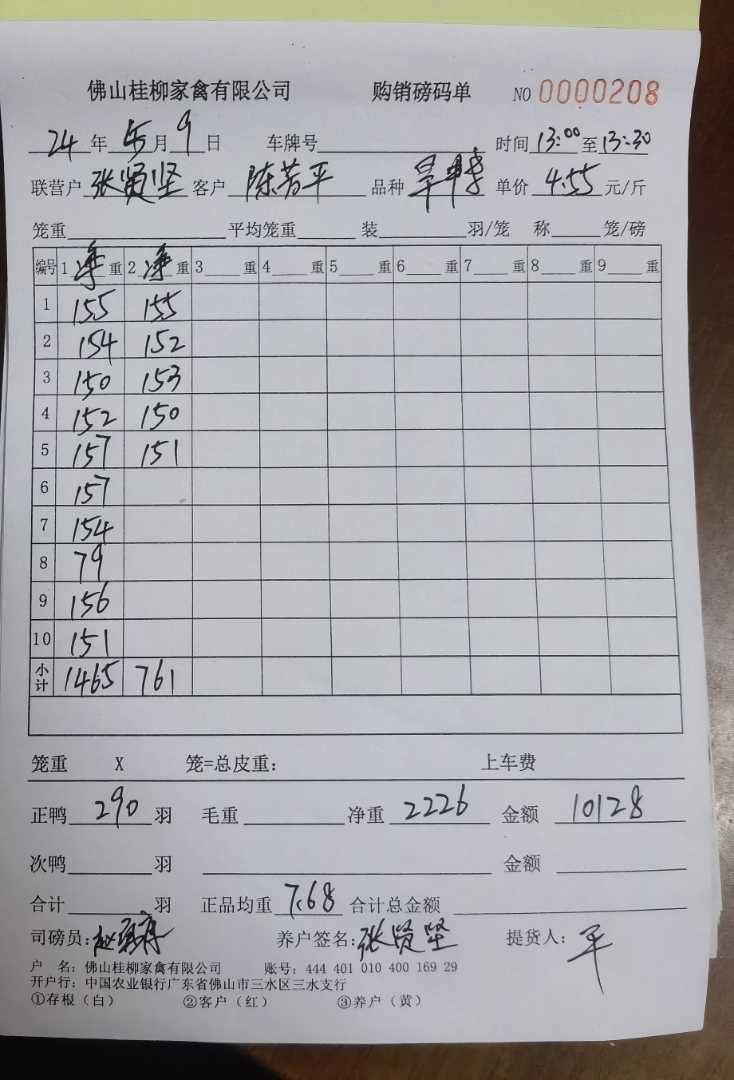 佛山桂柳家禽有限公司 购销磅码单 NO 0000208
24 年 5 月 9 日 车牌号 时间 13:00 至 13:30
联营户 张贤坚 客户 陈芳平 品种 单价 4.55 元/斤
笼重 平均笼重 装 羽/笼 称 笼/磅
编号 1 净 重 2 净 重 3 重 4 重 5 重 6 重 7 重 8 重 9 重
1 155 155
2 154 152
3 150 153
4 152 150
5 157 151
6 157
7 154
8 79
9 156
10 151
小计 1465 761
笼重 X 笼=总皮重: 上车费
正鸭 290 羽 毛重 净重 2226 金额 10128
次鸭 羽 金额
合计 羽 正品均重 7.68 合计总金额
司磅员: 养户签名: 张贤坚 提货人: 平
户 名: 佛山桂柳家禽有限公司 账号: 444 401 010 400 169 29
开户行: 中国农业银行广东省佛山市三水区三水支行
①存根（白） ②客户（红） ③养户（黄）